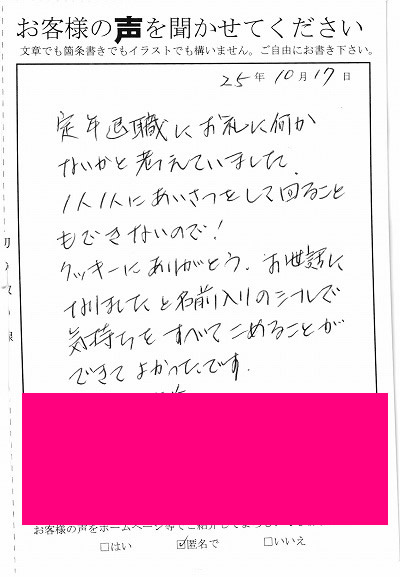 お客様の声を聞かせてください
文章でも箇条書きでもイラストでも構いません。ご自由にお書き下さい。
25年10月17日
定年退職にお礼に何か
ないかと考えていました.
1人1人にあいさつをして回ること
もできないので!
クッキーにありがとう. お世話に
なりましたと名前入りのシールで
気持ちをすべてこめることが
できてよかったです.
お客様の声をホームページ等でご紹介してよろしい
□はい ☑匿名で □いいえ